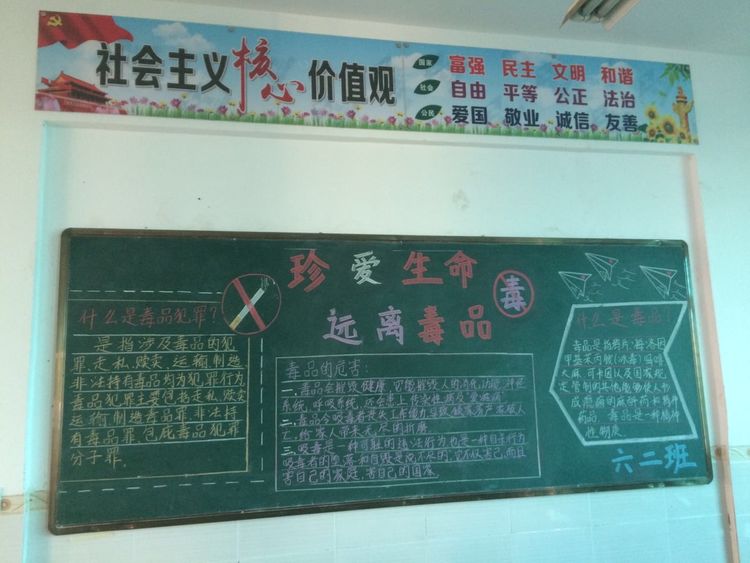 社会主义核心价值观
国家 富强 民主 文明 和谐
社会 自由 平等 公正 法治
公民 爱国 敬业 诚信 友善
珍爱生命
远离毒品
毒
什么是毒品犯罪?
是指涉及毒品的犯
罪走私、贩卖、运输制造
非法持有毒品均为犯罪行为
毒品犯罪主要包括走私、贩卖
运输制造毒品罪非法持
有毒品罪包庇毒品犯罪
分子罪.
毒品的危害:
一.毒品会摧毁健康,它能摧毁人的消化功能、神经
系统、呼吸系统,还会患上传染性病及"爱滋病"
二.毒品令吸毒者走失工作能力导致倾家荡产家破人
亡,给家人带来无尽的折磨.
三.吸毒是一种可耻的违法行为也是一种自手行为
吸毒者的堕落和自毁是说不尽的,它不仅害己,而且
害自己的家庭,害自己的国家.
什么是毒品?
毒品是指鸦片、海洛因
甲基苯丙胺(冰毒)吗啡
大麻 可卡因以及国家规
定管制的其他能够使人形
成瘾癖的麻醉药和精神
药品 毒品是一种精神
性物质
六二班